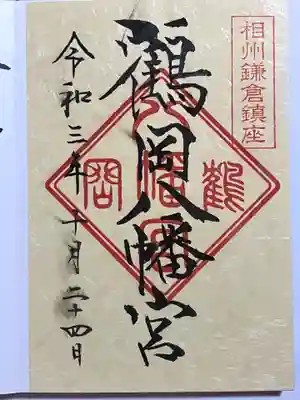 相州鎌倉鎮座
鶴岡八幡宮
令和三年十月二十四日
鶴岡